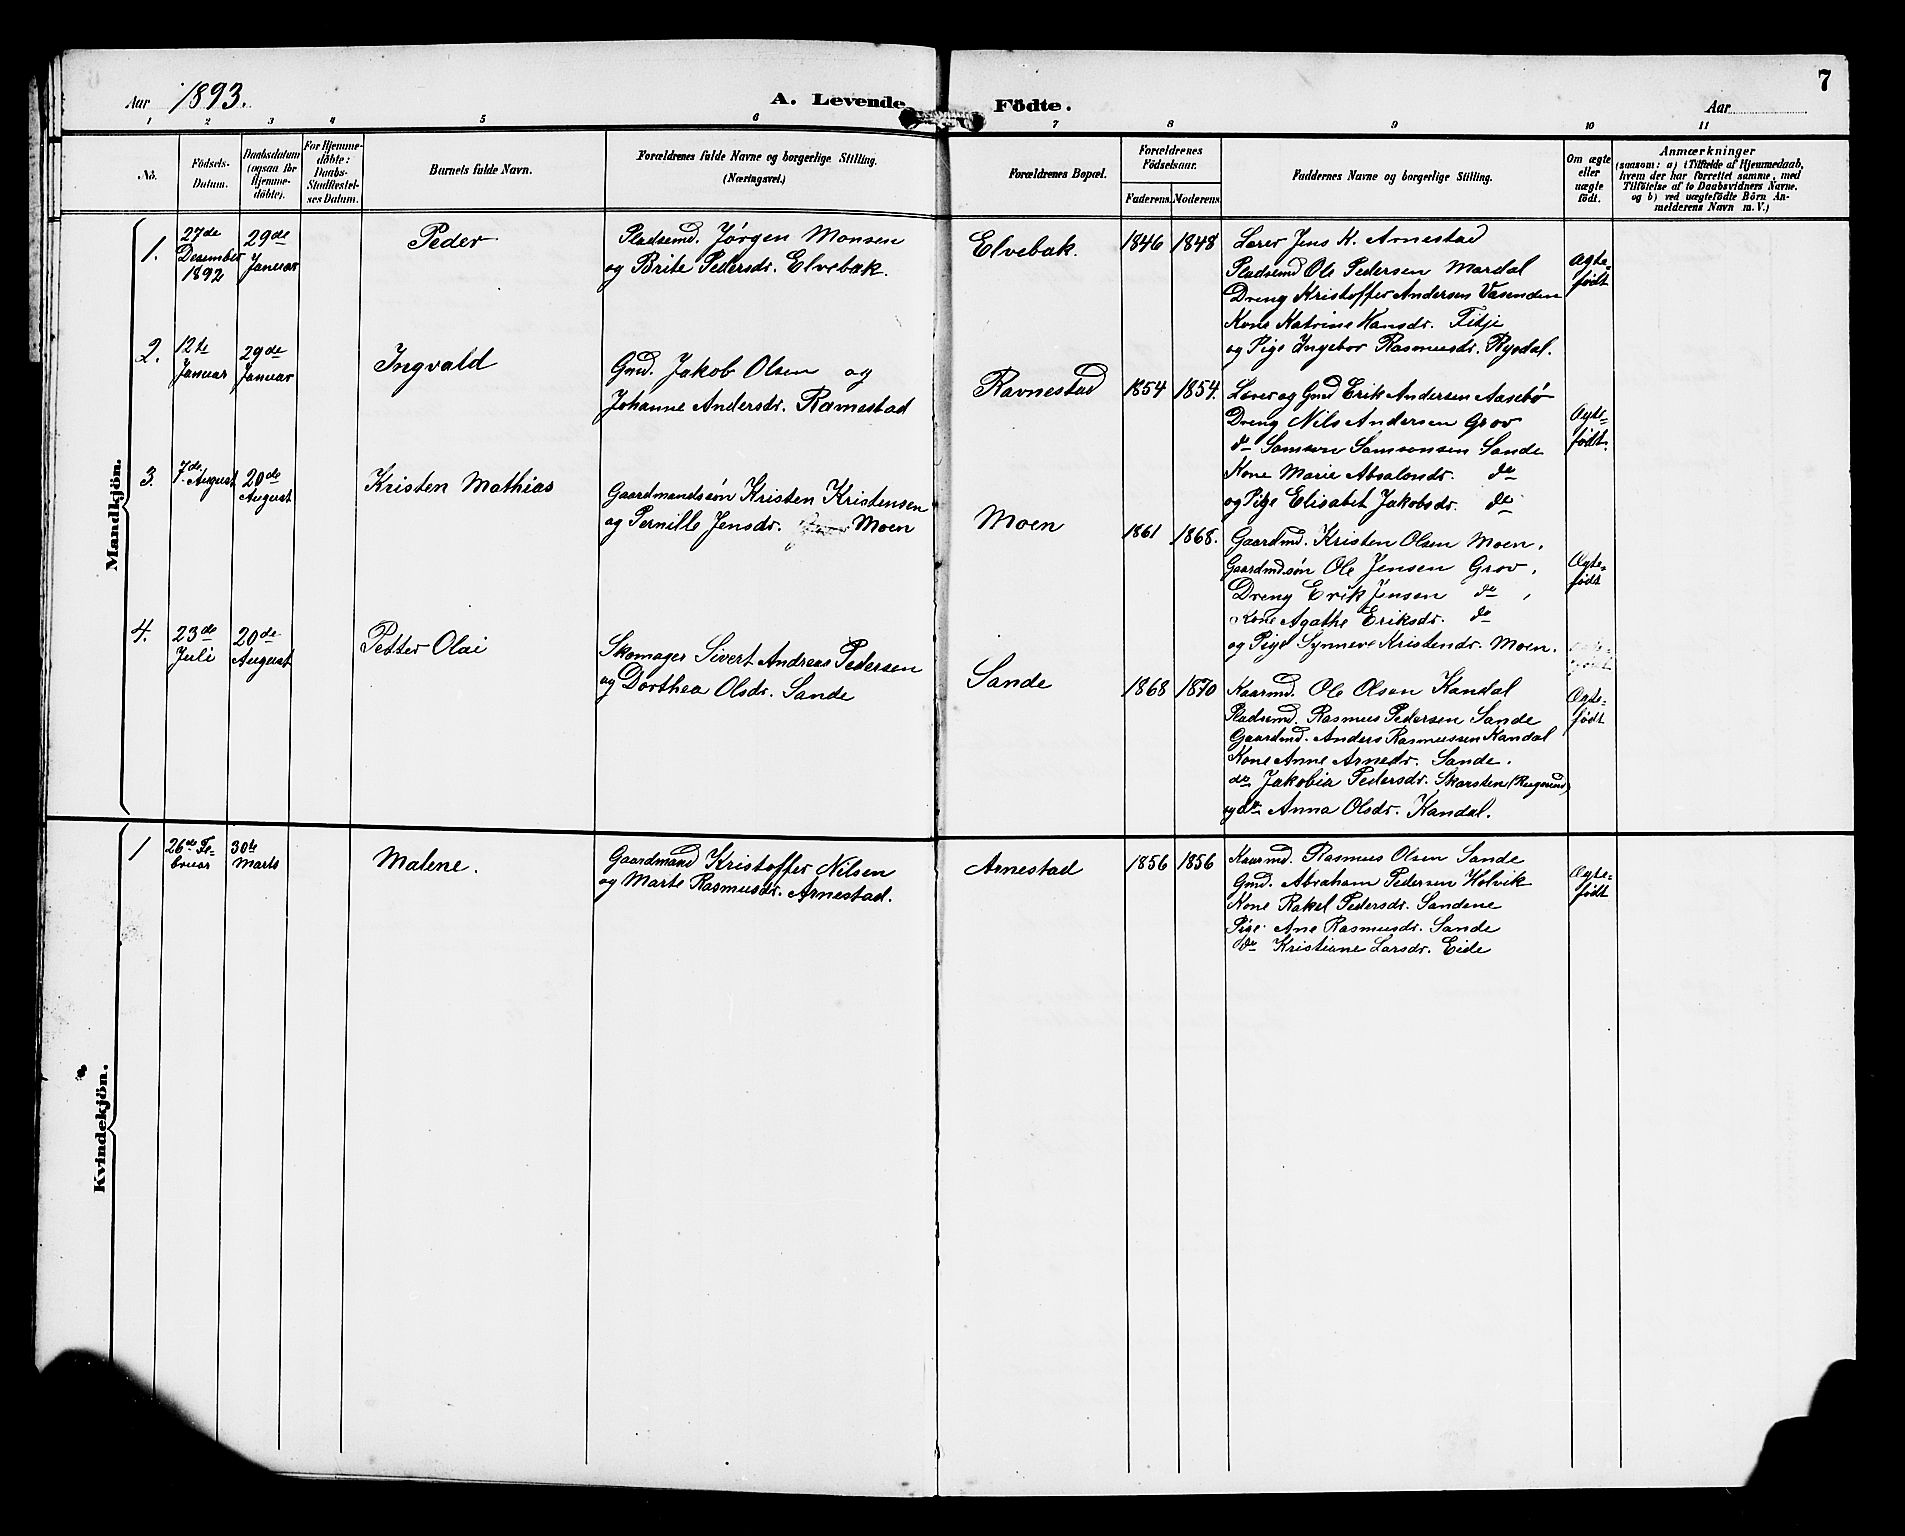 7
Aar 1893.
A. Levende Födte.
Aar
1 2 3 4 5 6 7 8 9 10 11
No.
Födsels-Datum.
Daabsdatum (ogsaa for Hjemmedöbte).
For Hjemmedöbte: Daabs-Stadfestelses Datum.
Barnets fulde Navn.
Forældrenes fulde Navne og borgerlige Stilling.
(Næringsvei.)
Forældrenes Bopæl.
Forældrenes Födselsaar.
Faderens Moderens
Faddernes Navne og borgerlige Stilling.
Om ægte eller uægte födt.
Anmærkninger
(saasom: a) i Tilfælde af Hjemmedaab,
hvem der har forrettet samme, med
Tilföielse af to Daabsvidners Navne,
og b) ved uægtefödte Börn An-
melderens Navn m. V.)
Mandkjön.
1.
27de
Desember
1892
29de
Januar
Peder
Pladsemd. Jørgen Monsen
og Brite Pedersdr. Elvebak.
Elvebak.
1846 1848
Lærer Jens K. Arnestad
Pladsemd Ole Pedersen Mardal
Dreng Kristoffer Andersen Vasenden
Kone Katrine Hansdr. Fitje
og Pige Ingebor Rasmusdr. Rysdal.
Ægte-
født
2.
12te
Januar
29de
Januar
Ingvald
Gmd. Jakob Olsen og
Johanne Andersdr. Ravnestad
Ravnestad
1854 1854.
Lærer og Gmd Erik Andersen Aasebø
Dreng Nils Andersen Grov
do Samson Samsonsen Sande
Kone Marie Absalonsdr. do
og Pige Elisabet Jakobsdr. do
Ægte-
født.
3.
7de August
20de
August
Kristen Mathias
Gaardmandsøn Kristen Kristensen
og Pernille Jensdr. Moen
Moen
1861 1868.
Gaardmd. Kristen Olsen Moen.
Gaardmdsøn Ole Jensen Grov,
Dreng Erik Jensen do,
Kone Agathe Eriksdr. do
og Pige Synneve Kristensdr. Moen.
Ægte-
født
4.
23de
Juli
20de
August
Petter Olai
Skomager Sivert Andreas Pedersen
og Dorthea Olsdr. Sande
Sande
1868 1870
Kaarmd. Ole Olsen Kandal
Pladsemd. Rasmus Pedersen Sande
Gaardmd. Anders Rasmussen Kandal
Kone Anne Arnedr. Sande.
do Jakobia Pedersdr. Skarsten
og do Anna Olsdr. Kandal.
Ægte-
født
Kvindekjön.
1
26de Fe-
bruar
30te
Marts
Malene.
Gaardmand Kristoffer Nilsen
og Marte Rasmusdr. Arnestad.
Arnestad
1856 1856
Kaarmd. Rasmus Olsen Sande
Gmd. Abraham Pedersen Holvik
Kone Rakel Pedersdr. Sandene
Pige Ane Rasmusdr. Sande
do Kristiane Larsdr. Eide
Ægte-
født